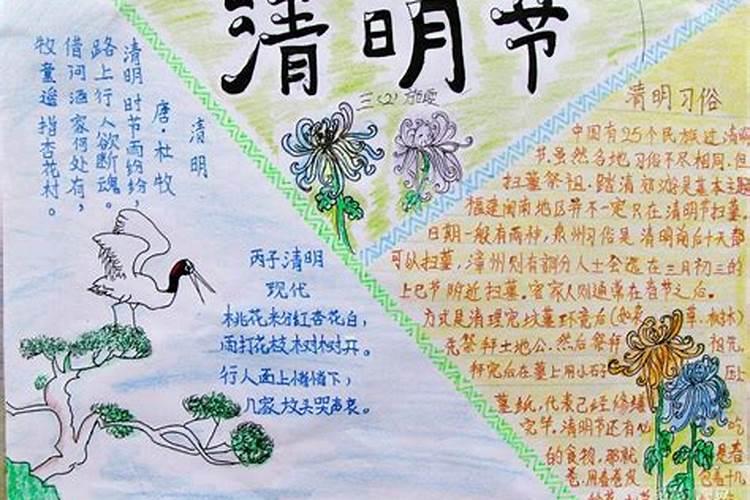 清明节
三(2) 施
清明
唐·杜牧
清明时节雨纷纷，
路上行人欲断魂。
借问酒家何处有，
牧童遥指杏花村。
丙子清明
现代
桃花粉红杏花白，
雨打花枝树树开。
行人面上情绪下，
几家坟头哭声哀。
清明习俗
中国有25个民族过清明
节，虽然各地习俗不尽相同，但
扫墓祭祖、踏清郊游是基本主题
福建闽南地区并不一定只在清明节扫墓，
日期一般有两种，泉州习俗是清明前后十天都
可以扫墓，漳州则有部分人士会选在三月初三的
上巳节附近扫墓。客家人则通常在春节之后。
方式是清理完坟墓环境后(如
草、树木)
先祭拜土地公，然后祭拜
祖先，
祭完后在墓上用小石
压上
墓纸，代表已经修缮
完毕。清明节还有
的
的食物，那就
是春
卷，用春卷皮
包着十几